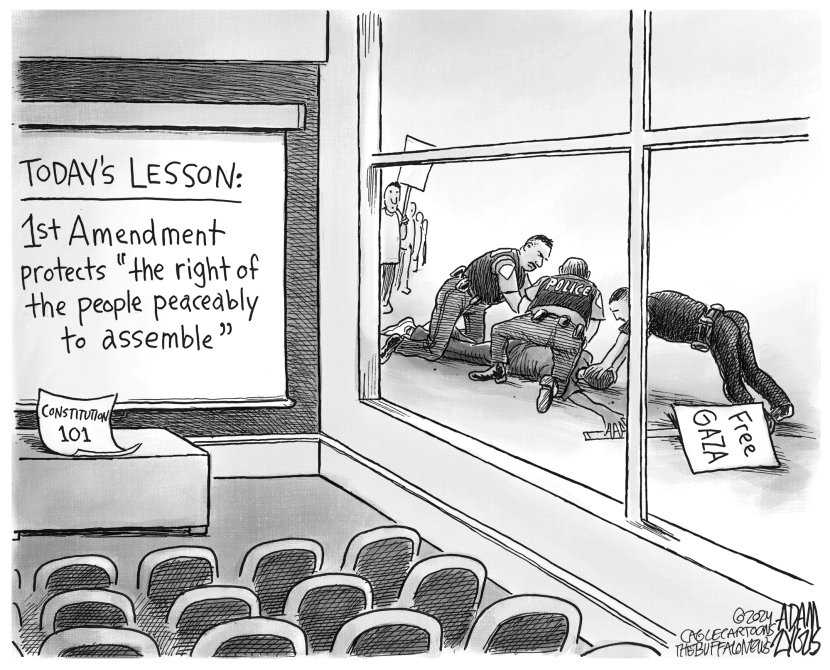 TODAY'S LESSON:
1st Amendment
protects "the right of
the people peaceably
to assemble"
CONSTITUTION
101
POLICE
Free
GAZA
©2024
CAGLECARTOONS
THE BUFFALO NEWS
ADAM
ZYGLIS